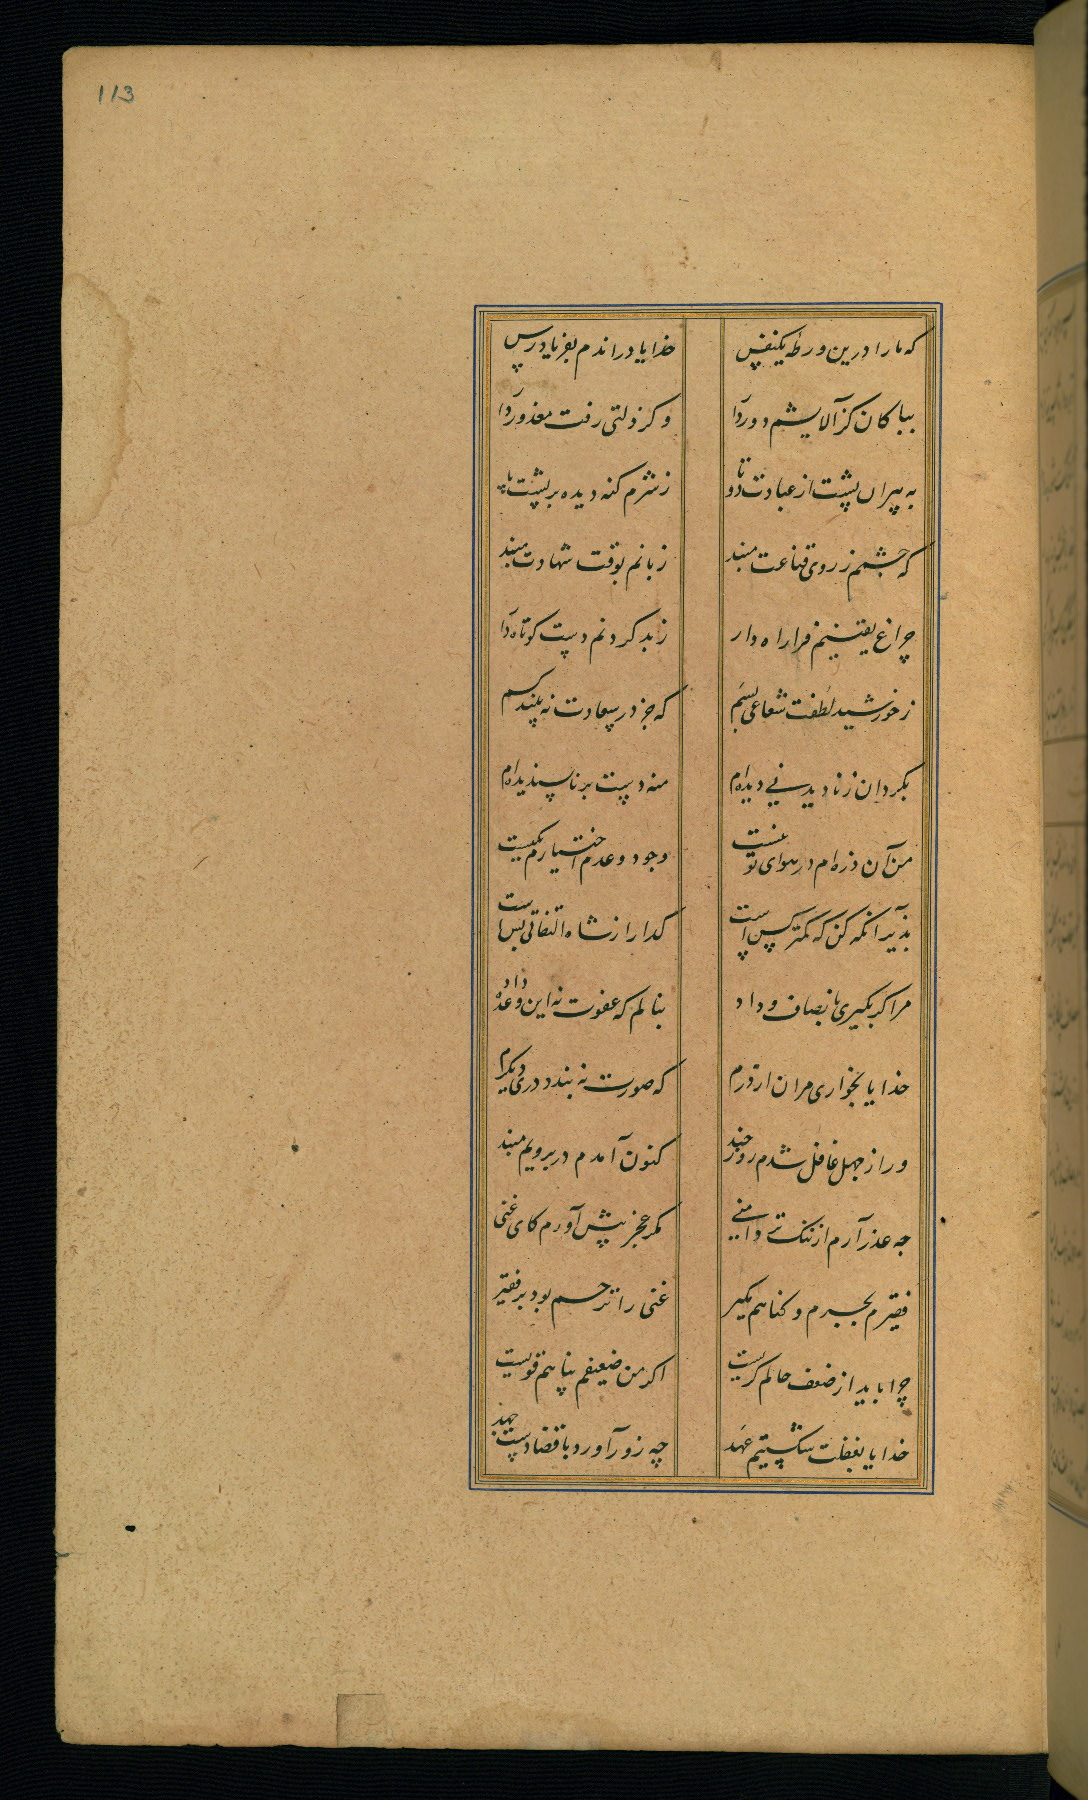 113
که ما را درین ورطه یکنفس خدایا در اندم بفریاد رس
بپاکان کز آلایشم دوردار وکر زلتی رفت معذوردار
به پیران پشت از عبادت دوتا ز شرم کنه دیده بر پشت پا
که چشمم ز روی قناعت مبند زبانم بوقت شهادت مبند
چراغ یقینیم فرا راه دار ز بد کردنم دست کوتاه دار
ز خورشید لطفت شعاعی بسم که جز در سعادت نه بیند کسم
بکردان ز نادیدنی دیده‌ام منه دست بر ناپسندیده‌ام
من آن ذره‌ام در هوای تو نیست وجود و عدم اختیارم یکیست
کدا را از شاه التفاتی بس است
مرا کر بکیری بانصاف و داد بنالم که عفوت نه این وعده داد
خدایا بخواری مران از درم که صورت نه بندد دری دیکرم
ور از جهل غافل شدم روز چند کنون آمدم در برویم مبند
چه عذر آرم از ننک تردامنی مکر عجز پیش آورم کای غنی
فقیرم بجرم و کناهم مکیر غنی را ترحم بود بر فقیر
چرا باید از ضعف حالم کریست اکر من ضعیفم پناهم قویست
خدایا بغفلت شکستیم عهد چه زور آورد با قضا دست جهد